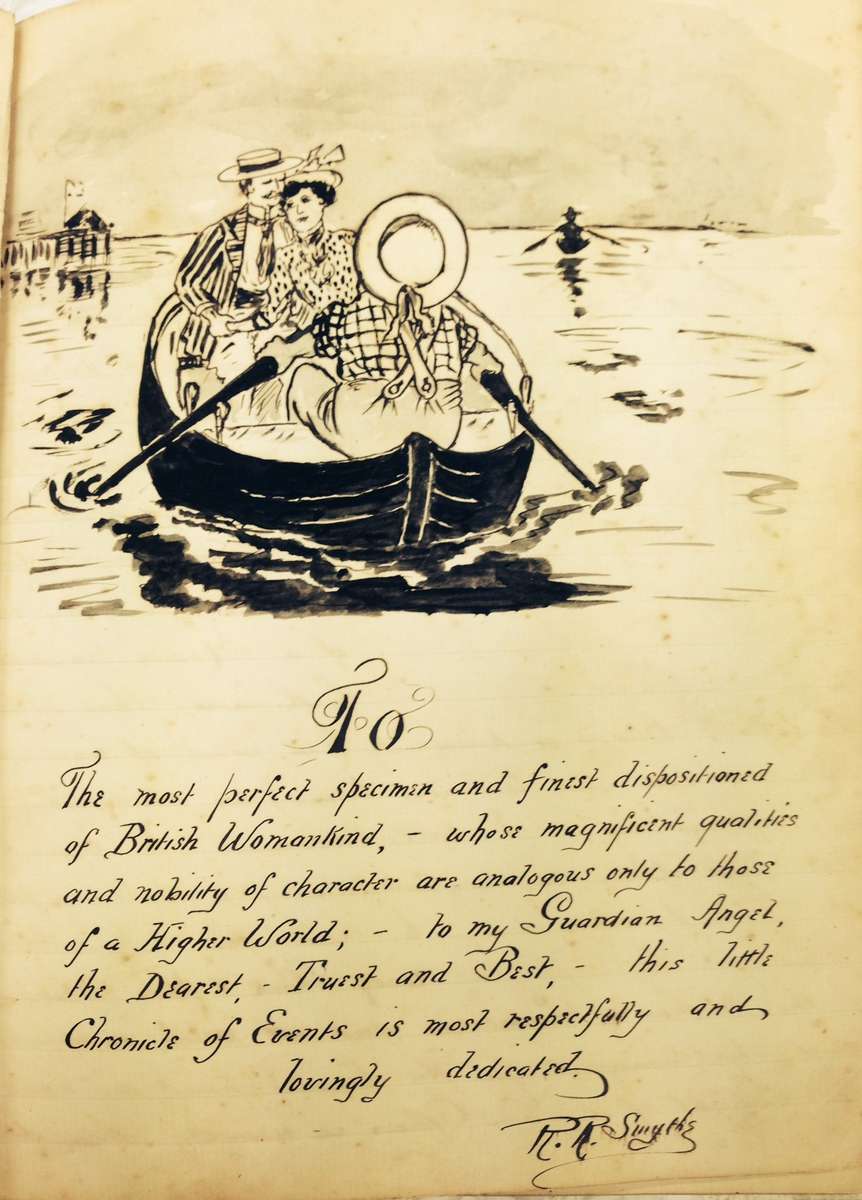 To
The most perfect specimen and finest dispositioned
of British Womankind, - whose magnificent qualities
and nobility of character are analogous only to those
of a Higher World; - to my Guardian Angel,
the Dearest, - Truest and Best, - this little
Chronicle of Events is most respectfully and
lovingly dedicated.
R. R. Smythe